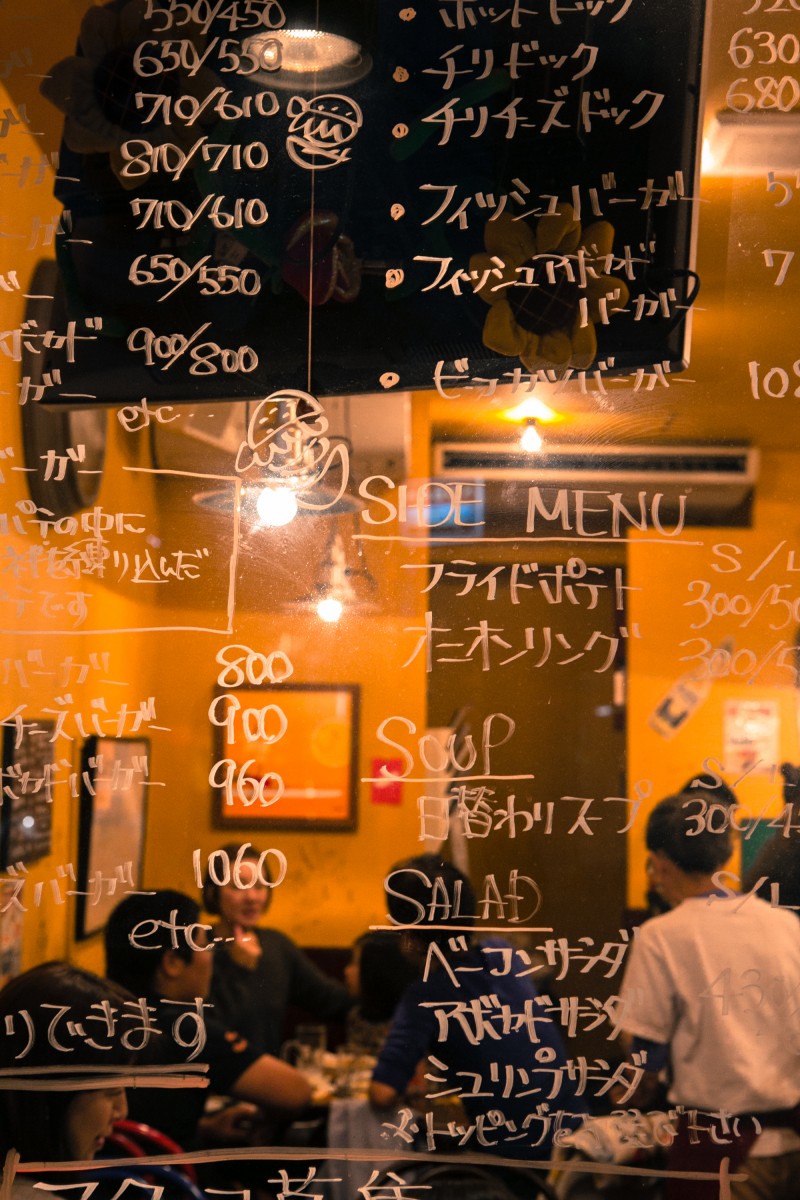 550/450
650/550
710/610
810/710
710/610
650/550
ボカド 900/800
ガー
etc...
ーガー
パテの中に
練り込んだ
テです
バーガー 800
チーズバーガー 900
ボカドバーガー 960
ズバーガー 1060
etc...
りできます
・ホットドック
・チリドック 630
・チリチーズドック 680
・フィッシュバーガー
・フィッシュアボカド 7
バーガー
・ビッグバーガー 108
SIDE MENU
S/L
フライドポテト 300/50
オニオンリング 300/5
SOUP
S/L
日替わりスープ 300/4
SALAD
S/L
ベーコンサラダ
アボカドサラダ 43
シュリンプサラダ
※トッピングをお選び下さい